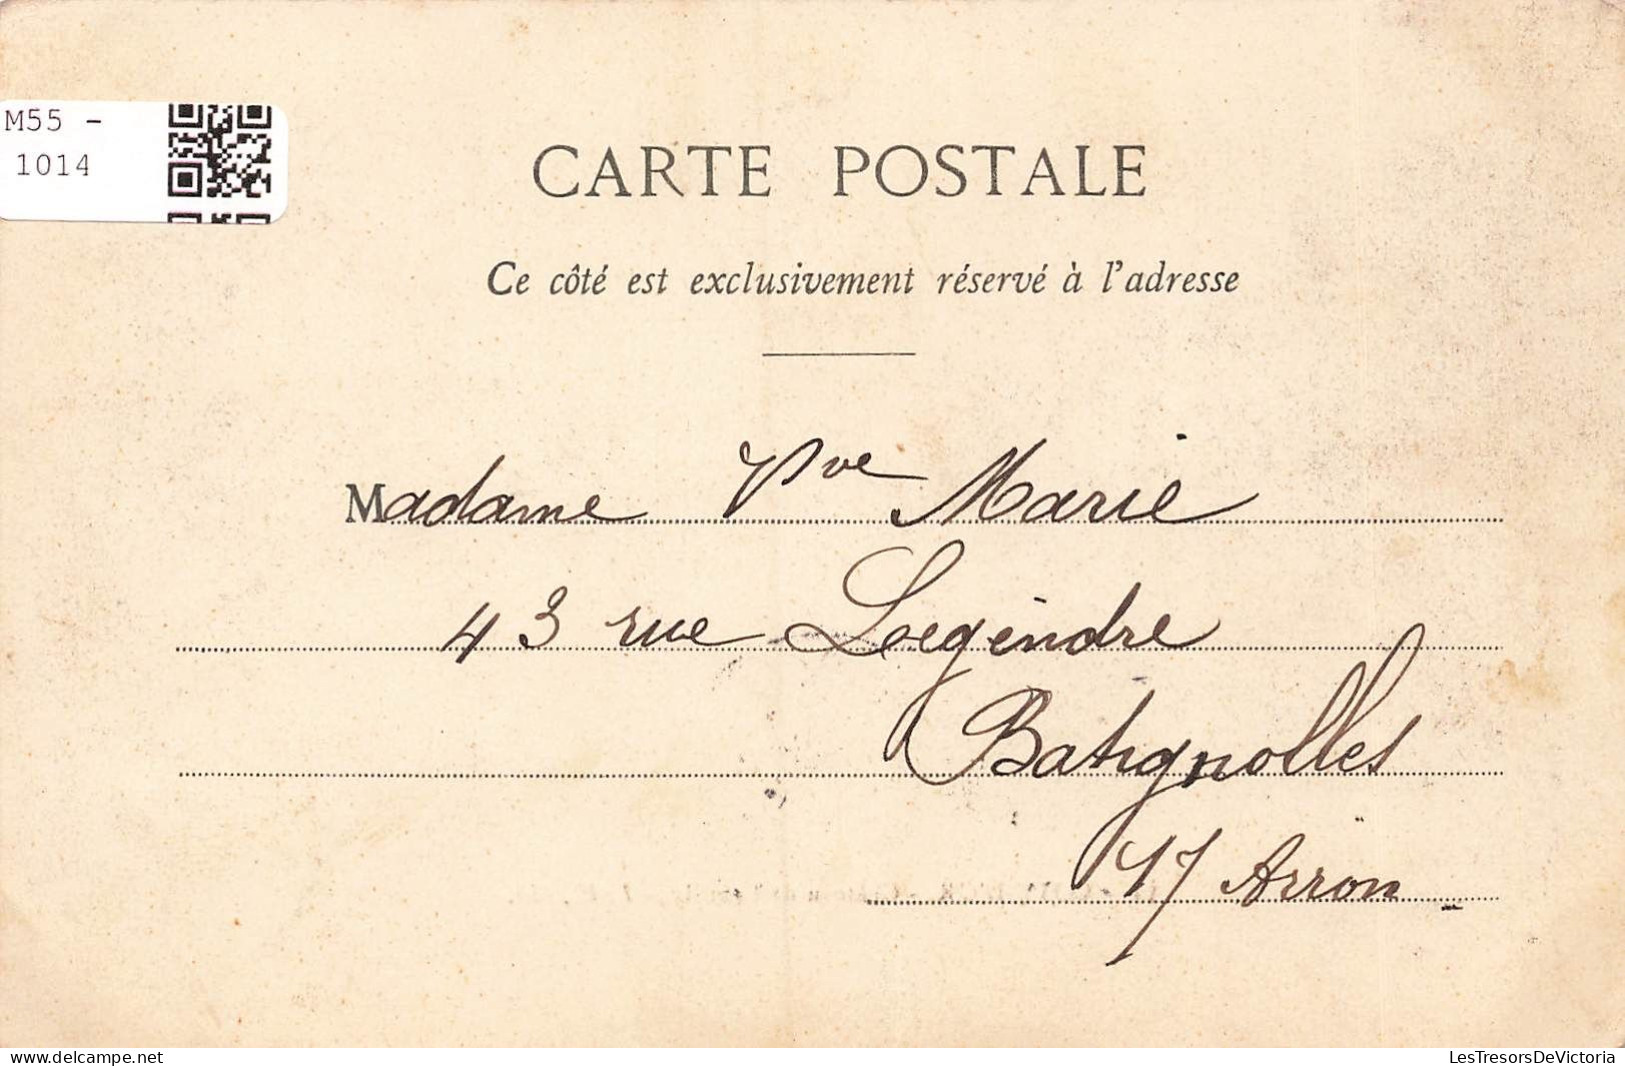 M55 -
1014
CARTE POSTALE
Ce côté est exclusivement réservé à l'adresse
Madame Vve Marie
43 rue Legendre
Batignolles
17 Arron
delcampe.net
LesTresorsDeVictoria